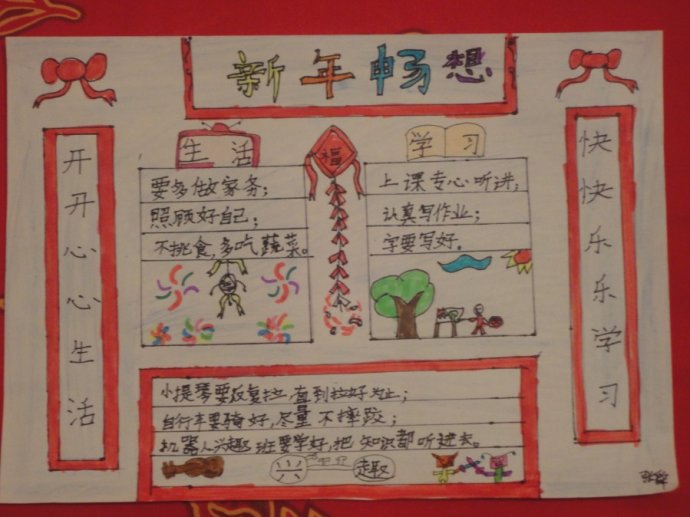 新年畅想
开开心心生活
生活
要多做家务；
照顾好自己；
不挑食，多吃蔬菜。
福
学习
上课专心听讲；
认真写作业；
字要写好。
快快乐乐学习
小提琴要反复拉，直到拉好为止；
自行车要骑好，尽量不摔跤；
机器人兴趣班要学好，把知识都听进去。
兴趣